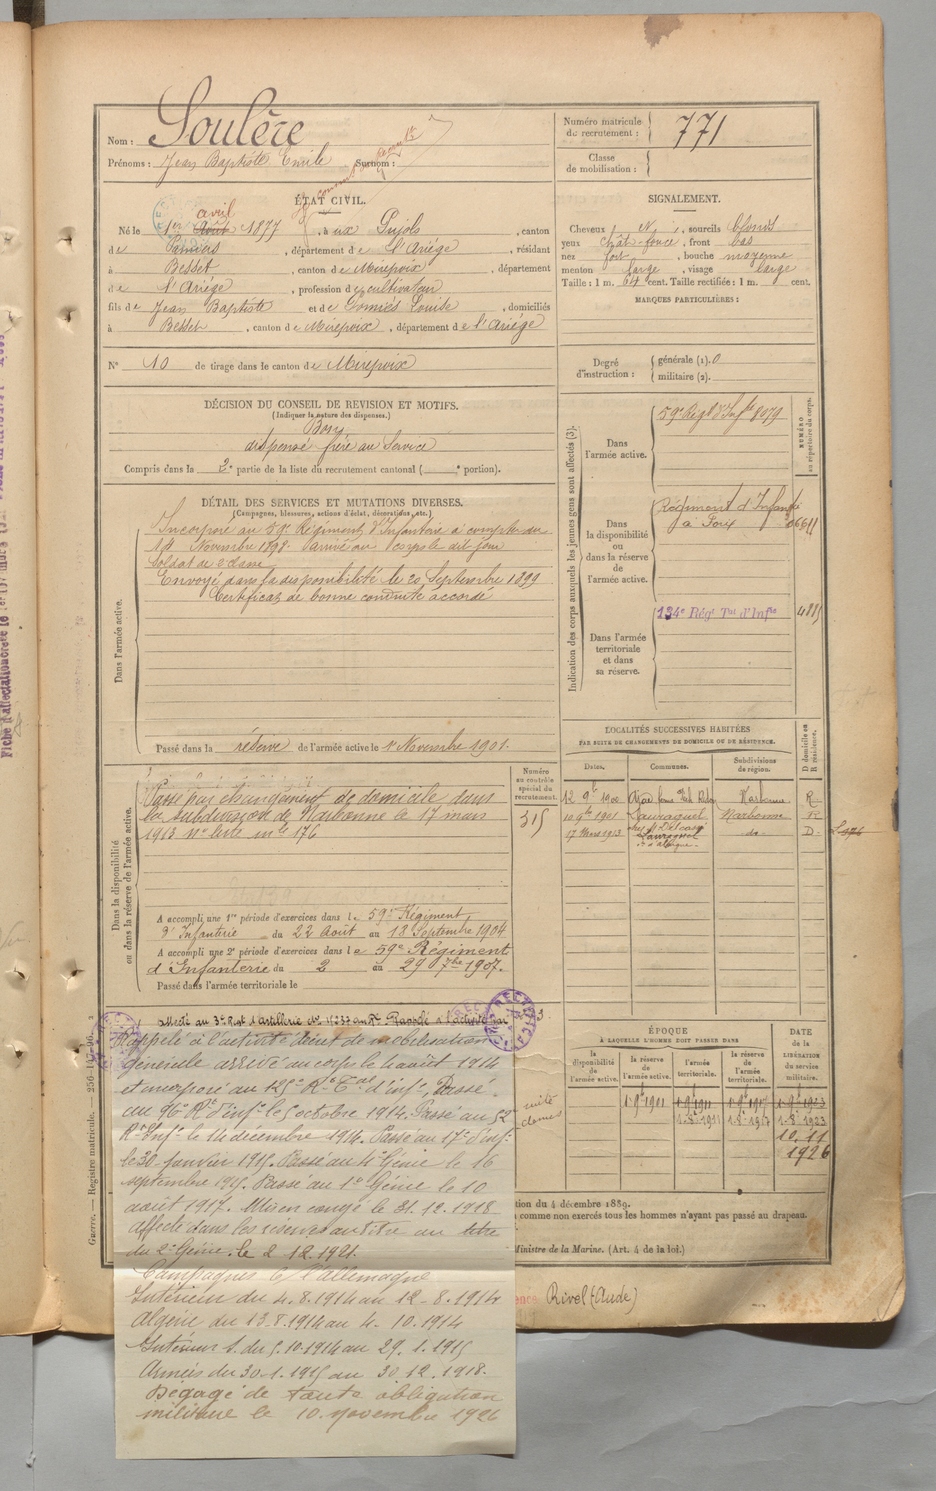 Nom : Soulère
Prénoms : Jean Baptiste Emile Surnom :
Numéro matricule du recrutement : 771
Classe de mobilisation :
ÉTAT CIVIL.
Né le 1er avril Août 1877, à ux Pujols, canton
de Pamiers, département de l'Ariège, résidant
à Besset, canton de Mirepoix, département
de l'Ariège, profession de cultivateur
fils de Jean Baptiste et de Comiès Louise, domiciliés
à Besset, canton de Mirepoix, département de l'Ariège
N° 10 de tirage dans le canton de Mirepoix
SIGNALEMENT.
Cheveux N, sourcils blonds
yeux chât-foncé, front bas
nez fort, bouche moyenne
menton large, visage large
Taille : 1 m. 64 cent. Taille rectifiée : 1 m. cent.
MARQUES PARTICULIÈRES :
Degré d'instruction : générale (1). 0
militaire (2).
DÉCISION DU CONSEIL DE REVISION ET MOTIFS.
(Indiquer la nature des dispenses.)
Bon
dispensé frère au Service
Compris dans la 2e partie de la liste du recrutement cantonal ( e portion).
DÉTAIL DES SERVICES ET MUTATIONS DIVERSES.
(Campagnes, blessures, actions d'éclat, décorations, etc.)
Dans l'armée active.
Incorporé au 59e Régiment d'Infanterie à compter du
14 Novembre 1898. Arrivé au Corps le dit jour
Soldat de 2e classe
Envoyé dans la disponibilité le 20 Septembre 1899
Certificat de bonne conduite accordé
Passé dans la réserve de l'armée active le 1er Novembre 1901.
Indication des corps auxquels les jeunes gens sont affectés (3).
NUMÉRO au répertoire du corps.
Dans l'armée active. 59e Régt d'Infrie 8079
Dans la disponibilité ou dans la réserve de l'armée active.
Régiment d'Infantie
à Foix
Dans l'armée territoriale et dans sa réserve.
134e Régt Tal d'Infie
LOCALITÉS SUCCESSIVES HABITÉES
PAR SUITE DE CHANGEMENTS DE DOMICILE OU DE RÉSIDENCE.
Dates. Communes. Subdivisions de région. D domicile ou R résidence.
12 9b 1900 Narbonne R
10 9bre 1901 Lauraguel Narbonne R
17 Mars 1913 Lauraguel -do- D.
Dans la disponibilité ou dans la réserve de l'armée active.
Numéro au contrôle spécial du recrutement.
315
Passé par changement de domicile dans
la subdivision de Narbonne le 17 mars
1913 n° liste mle 176
A accompli une 1re période d'exercices dans le 59e Régiment
d'Infanterie du 22 Août au 18 Septembre 1904
A accompli une 2e période d'exercices dans le 59e Régiment
d'Infanterie du 2 au 29 7bre 1907.
Passé dans l'armée territoriale le
Rappelé à l'activité décret de mobilisation
générale arrivé au corps le 4 août 1914
et incorporé au 125e Rt Tal d'infie, Passé
au 96e Rt d'infie le 5 octobre 1914. Passé au 52e
Rt Infie le 14 décembre 1914. Passé au 17e d'infie
le 30 janvier 1915. Passé au 4e Génie le 16
septembre 1915. Passé au 1er Génie le 10
août 1917. Mis en congé le 31.12.1918
affecté dans les réserves au titre au titre
du 2e Génie le 2.12.1921.
Campagnes C/ l'allemagne
Intérieur du 4.8.1914 au 12-8.1914
Algérie du 13.8.1914 au 4.10.1914
Intérieur du 5.10.1914 au 29.1.1915
Armées du 30.1.1915 au 30.12.1918.
Dégagé de toute obligation
militaire le 10 novembre 1926
ÉPOQUE
À LAQUELLE L'HOMME DOIT PASSER DANS
la disponibilité de l'armée active. la réserve de l'armée active. l'armée territoriale. la réserve de l'armée territoriale.
DATE DE LA LIBÉRATION DU SERVICE militaire.
1.9b 1901 1.9b 1911 1.9b 1917 1.9b 1923
1.8.1911 1.8.1917 1.8.1923
10.11
1926
tion du 4 décembre 1889.
comme non exercés tous les hommes n'ayant pas passé au drapeau.
Ministre de la Marine. (Art. 4 de la loi.)
Rivel (Aude)
Guerre. — Registre matricule.